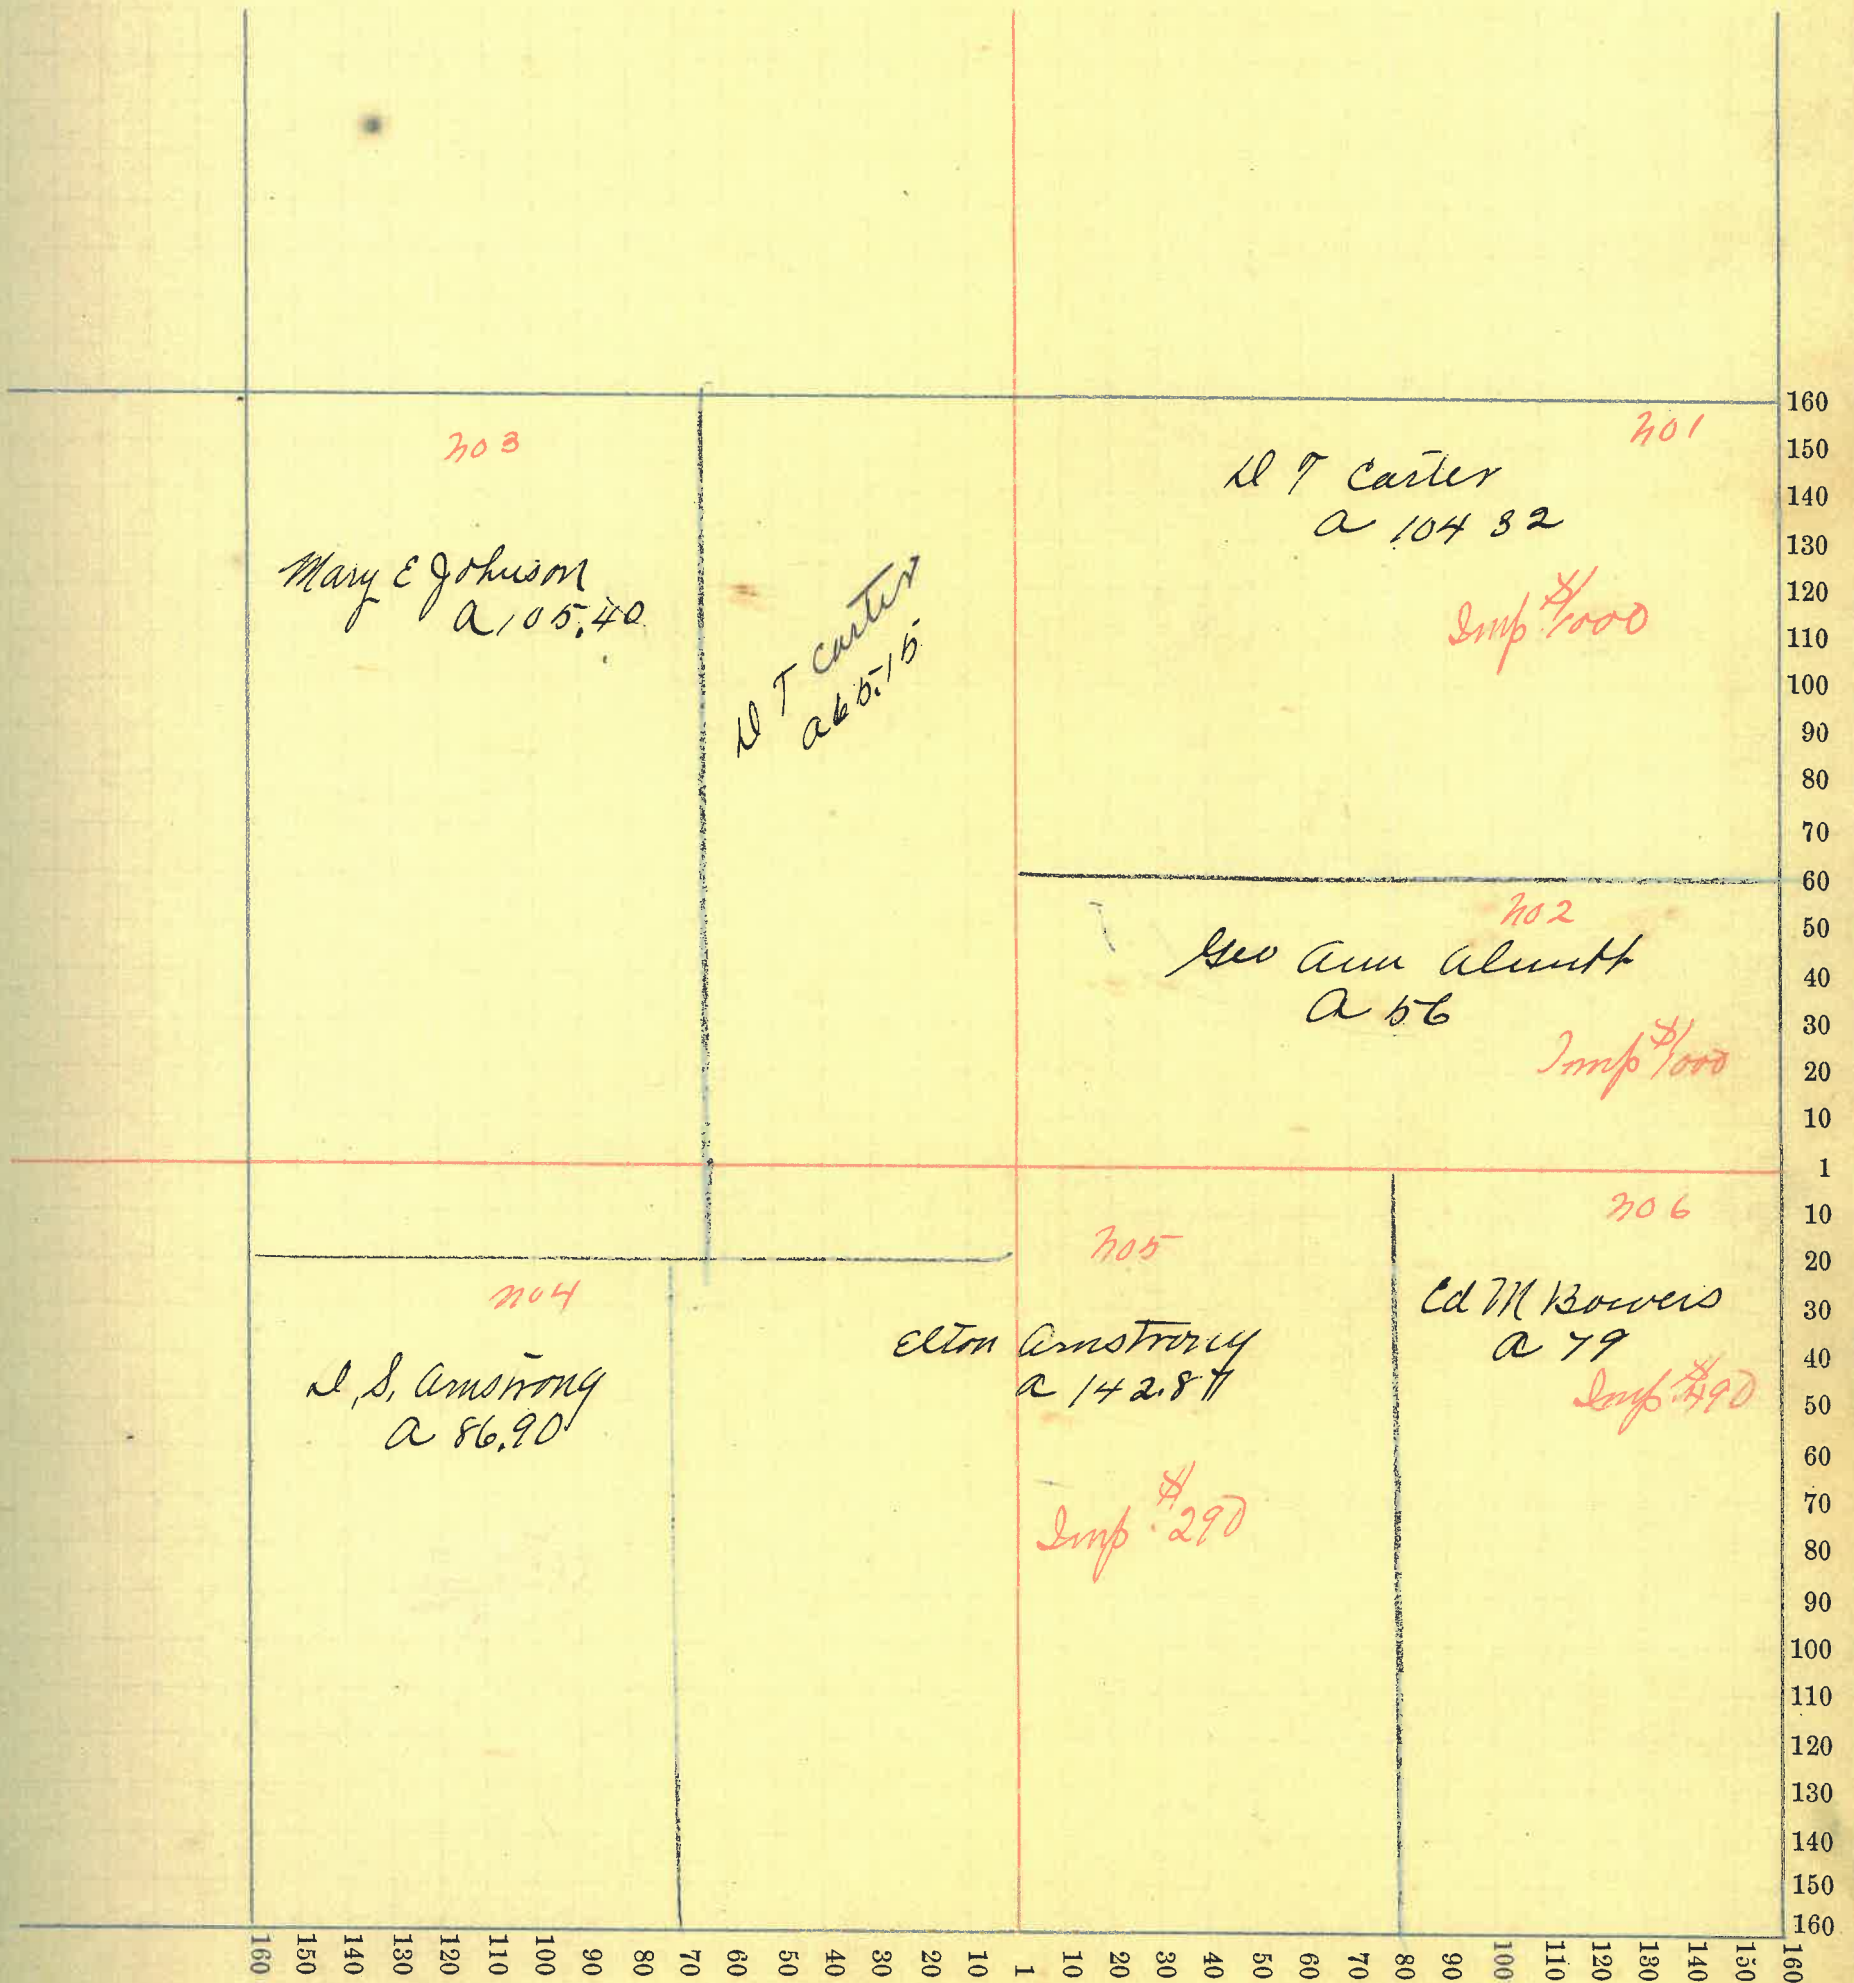 no 3
Mary E Johnson
A 105.40
D T Carter
A 65.15
no 1
D T Carter
A 104 32
Imp $1000
no 2
Geo Ann
A 56
Imp $1000
no 4
D. S. Armstrong
A 86.90
no 5
Elton Armstrong
A 142.8
Imp $290
no 6
Ed M Bowers
A 79
Imp $490
160
150
140
130
120
110
100
90
80
70
60
50
40
30
20
10
1
10
20
30
40
50
60
70
80
90
100
110
120
130
140
150
160
160 150 140 130 120 110 100 90 80 70 60 50 40 30 20 10 1 10 20 30 40 50 60 70 80 90 100 110 120 130 140 150 160